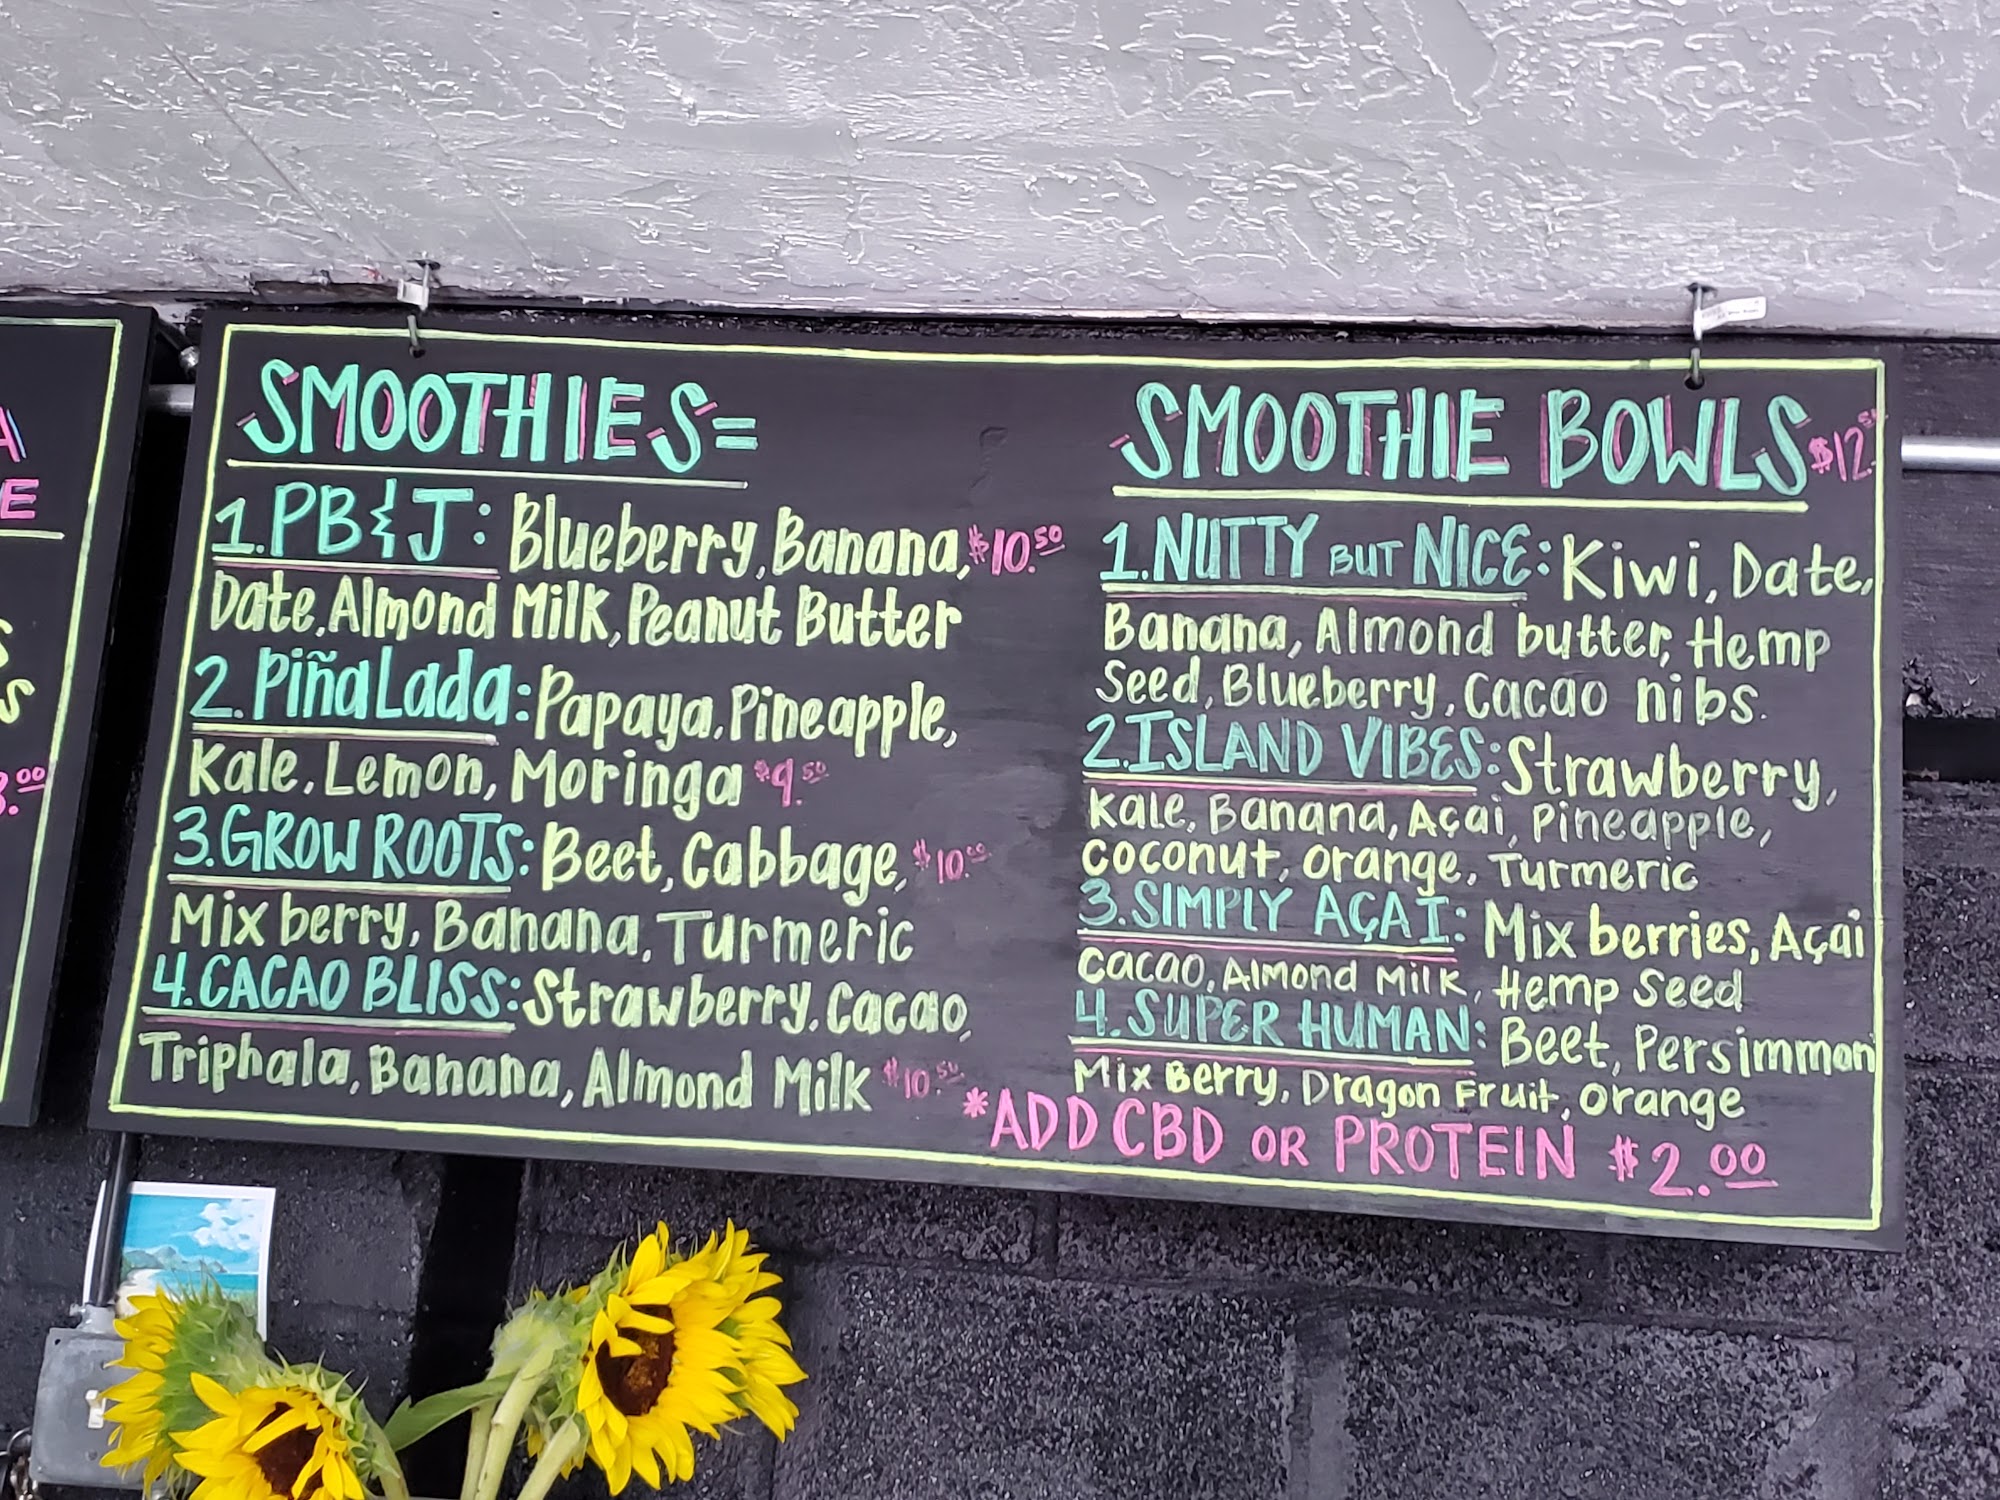 SMOOTHIES=
1.PB&J: Blueberry, Banana, $10.50
Date, Almond Milk, Peanut Butter
2. PiñaLada: Papaya, Pineapple,
Kale, Lemon, Moringa $9.50
3.GROW ROOTS: Beet, Cabbage, $10.00
Mix berry, Banana, Turmeric
4.CACAO BLISS: Strawberry, Cacao,
Triphala, Banana, Almond Milk $10.50
SMOOTHIE BOWLS $12.50
1.NUTTY BUT NICE: Kiwi, Date,
Banana, Almond butter, Hemp
Seed, Blueberry, Cacao nibs.
2.ISLAND VIBES: Strawberry,
Kale, Banana, Açai, Pineapple,
Coconut, Orange, Turmeric
3.SIMPLY AÇAI: Mix berries, Açai
Cacao, Almond Milk, Hemp Seed
4.SUPER HUMAN: Beet, Persimmon
Mix Berry, Dragon Fruit, Orange
*ADD CBD OR PROTEIN $2.00